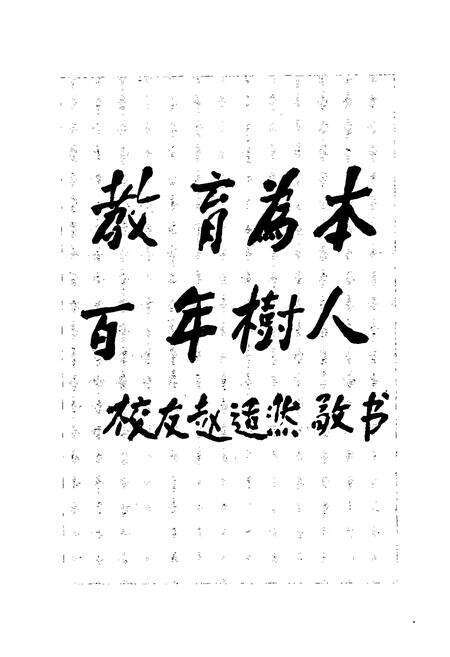 教育為本
百年樹人
校友赵适然敬书